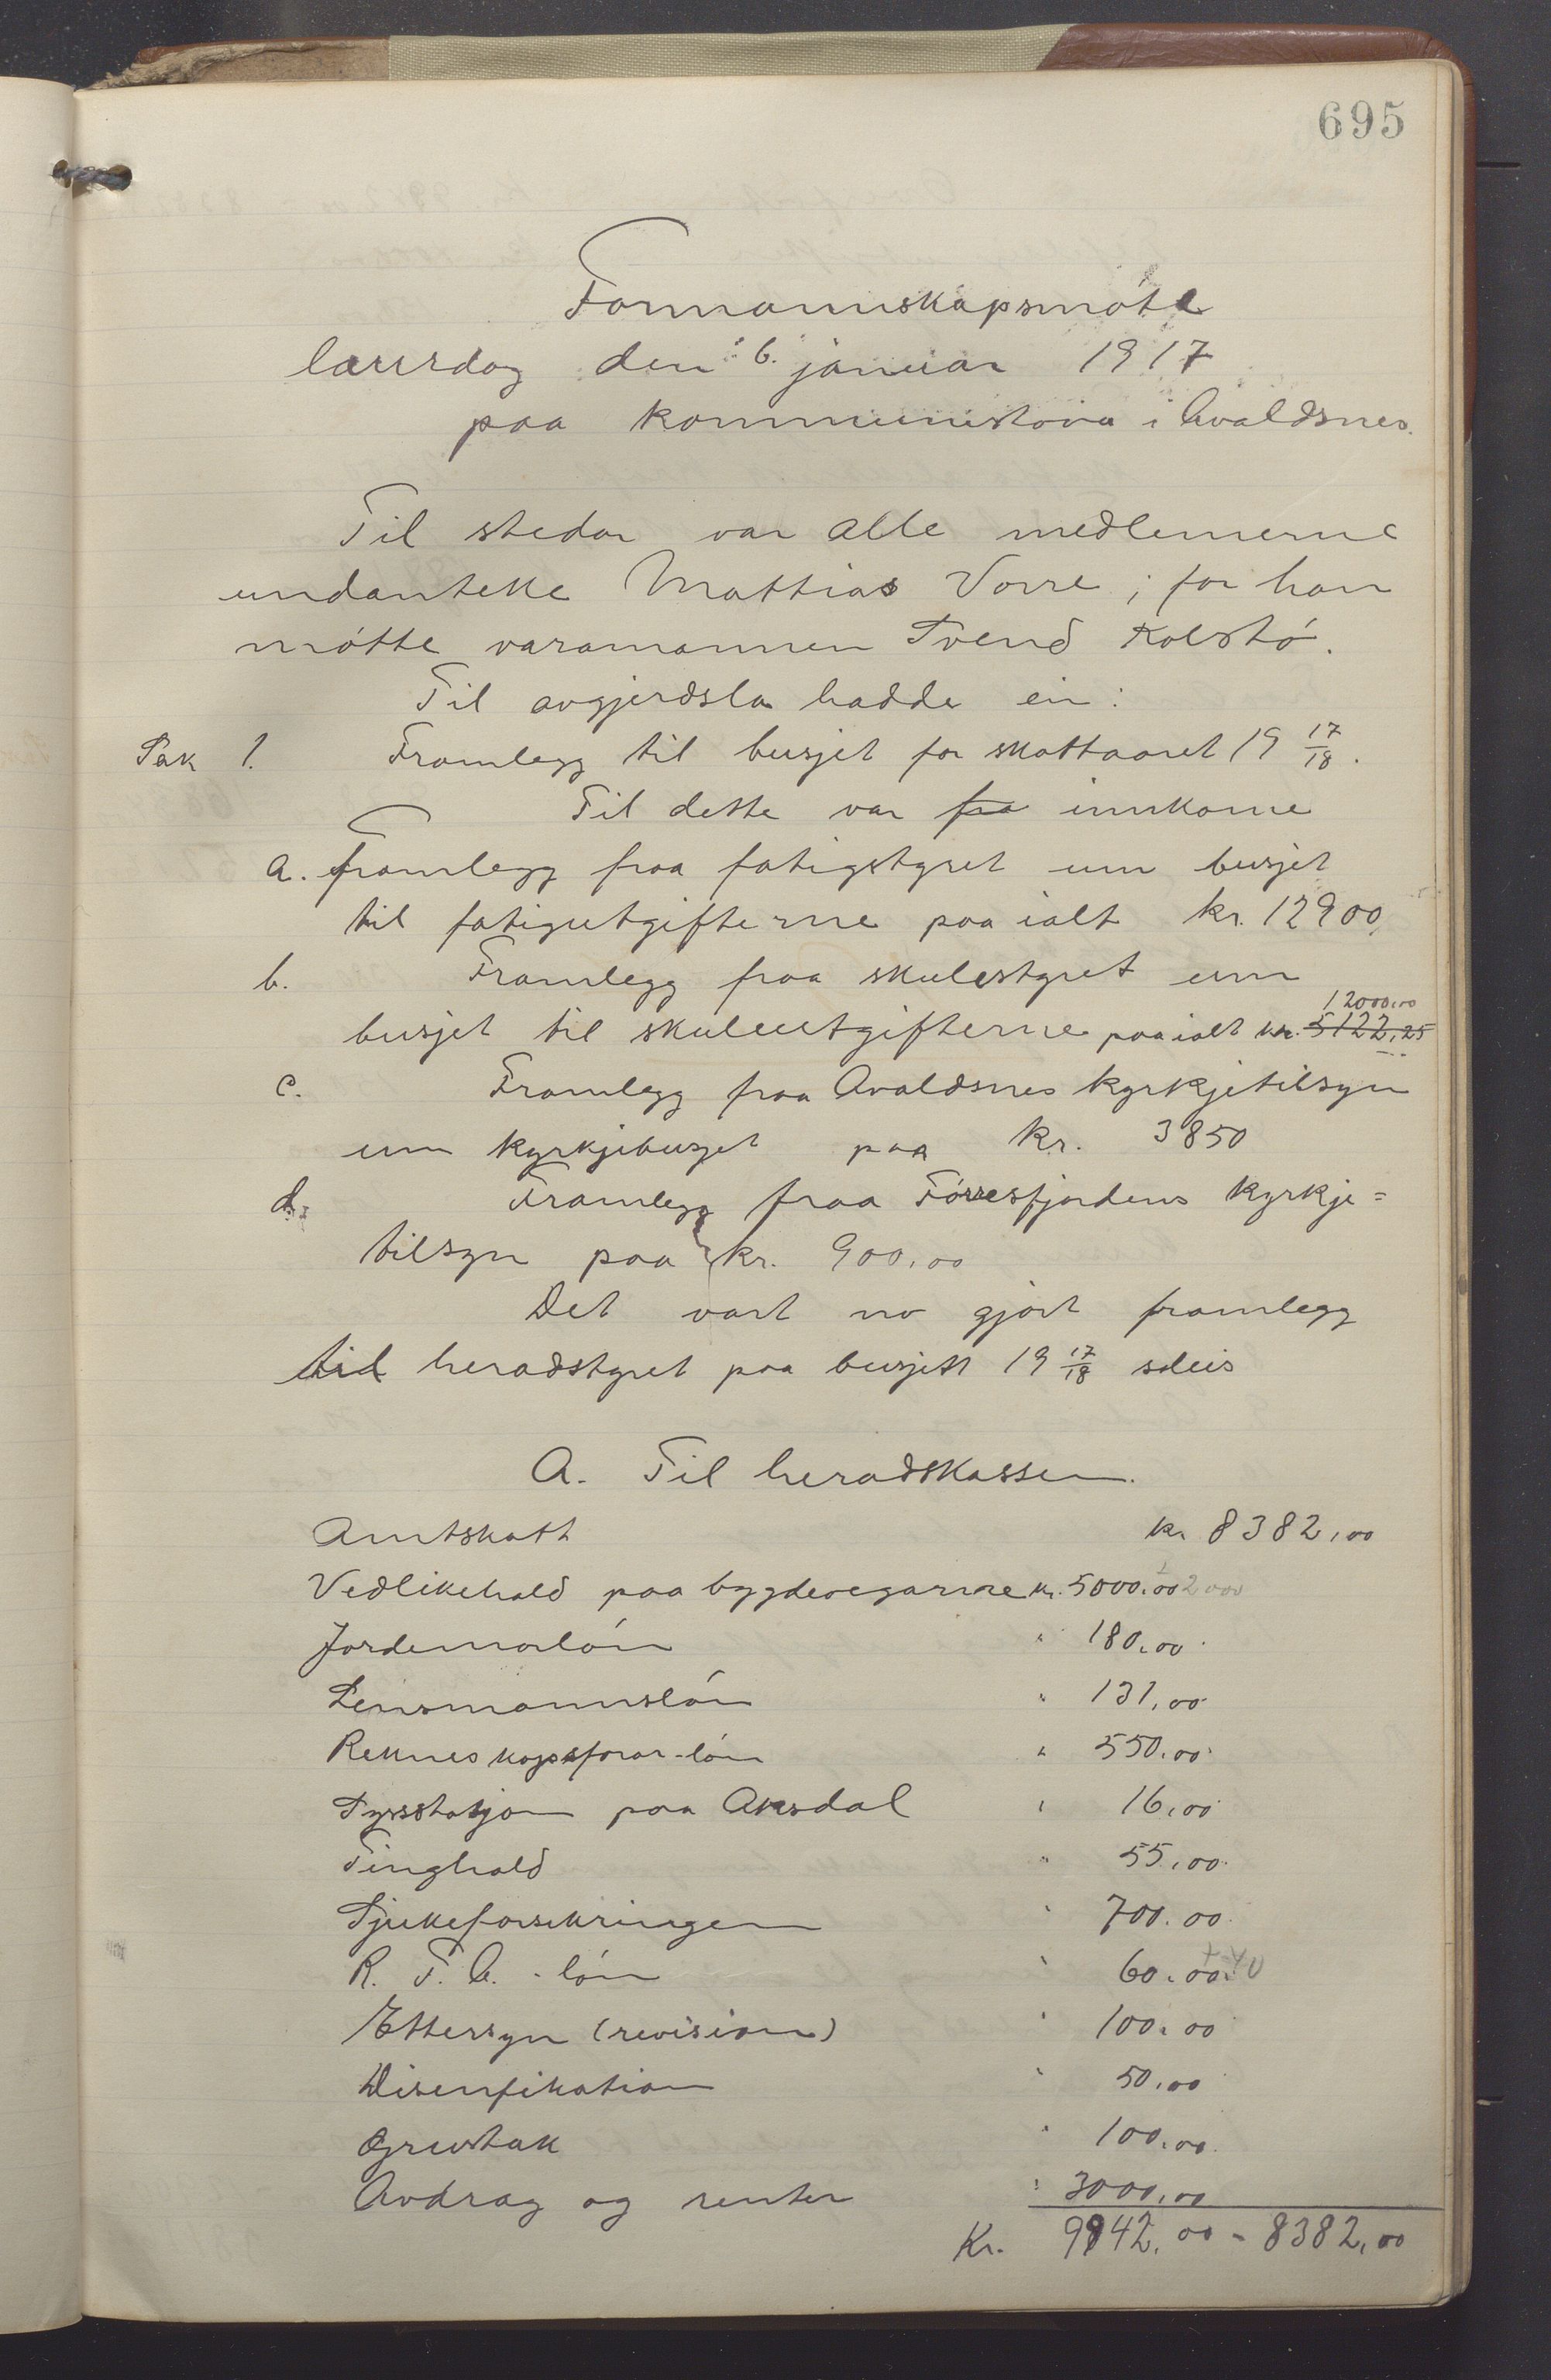 695
Formannskapsmöte
laursdag den 6. januar 1917
paa kommunestova i Avaldsnes.
Til stedar var alle medlemerne
undanteke Mattias Vorre; for han
mötte varamannen Svend Kolstö.
Til avgjerdsla hadde ein:
Sak 1. Framlegg til busjet for skattaaret 19 17/18.
Til dette var fra innkome
a. framlegg fraa fatigstyret um busjet
til fatigutgifterne paa ialt kr. 12900,
b. Framlegg fraa skulestyret um
12000,00
busjet til skuleutgifterne paa ialt kr. 5122,25
c. Framlegg fraa Avaldsnes kyrkjetilsyn
um kyrkjebusjet paa kr. 3850
d. Framlegg fraa Förresfjordens kyrkje=
tilsyn paa kr. 900,00
Det vart no gjort framlegg
til heradstyret paa busjett 19 17/18 soleis
A. Til heradskassen.
Amtskatt kr 8382,00
Vedlikehald paa bygdevegarne kr. 5000,00 2000
Jordemorlön " 180,00
Lensmannslön " 131,00
Rekneskapsförar-lön " 550,00
Fyrstasjon paa Aksdal " 16,00
Tinghald " 55,00
Sjukeforsikringen " 700.00
R. F. A. - lön " 60.00 + 40
Ettersyn (revision) " 100.00
Disenfikation " 50,00
Grustak " 100,00
Avdrag og renter " 3000,00
Kr. 9942,00 - 8382,00